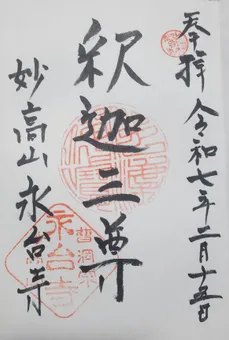 奉拝 令和七年二月十五日
釈迦三尊
妙高山 永台寺
永台寺